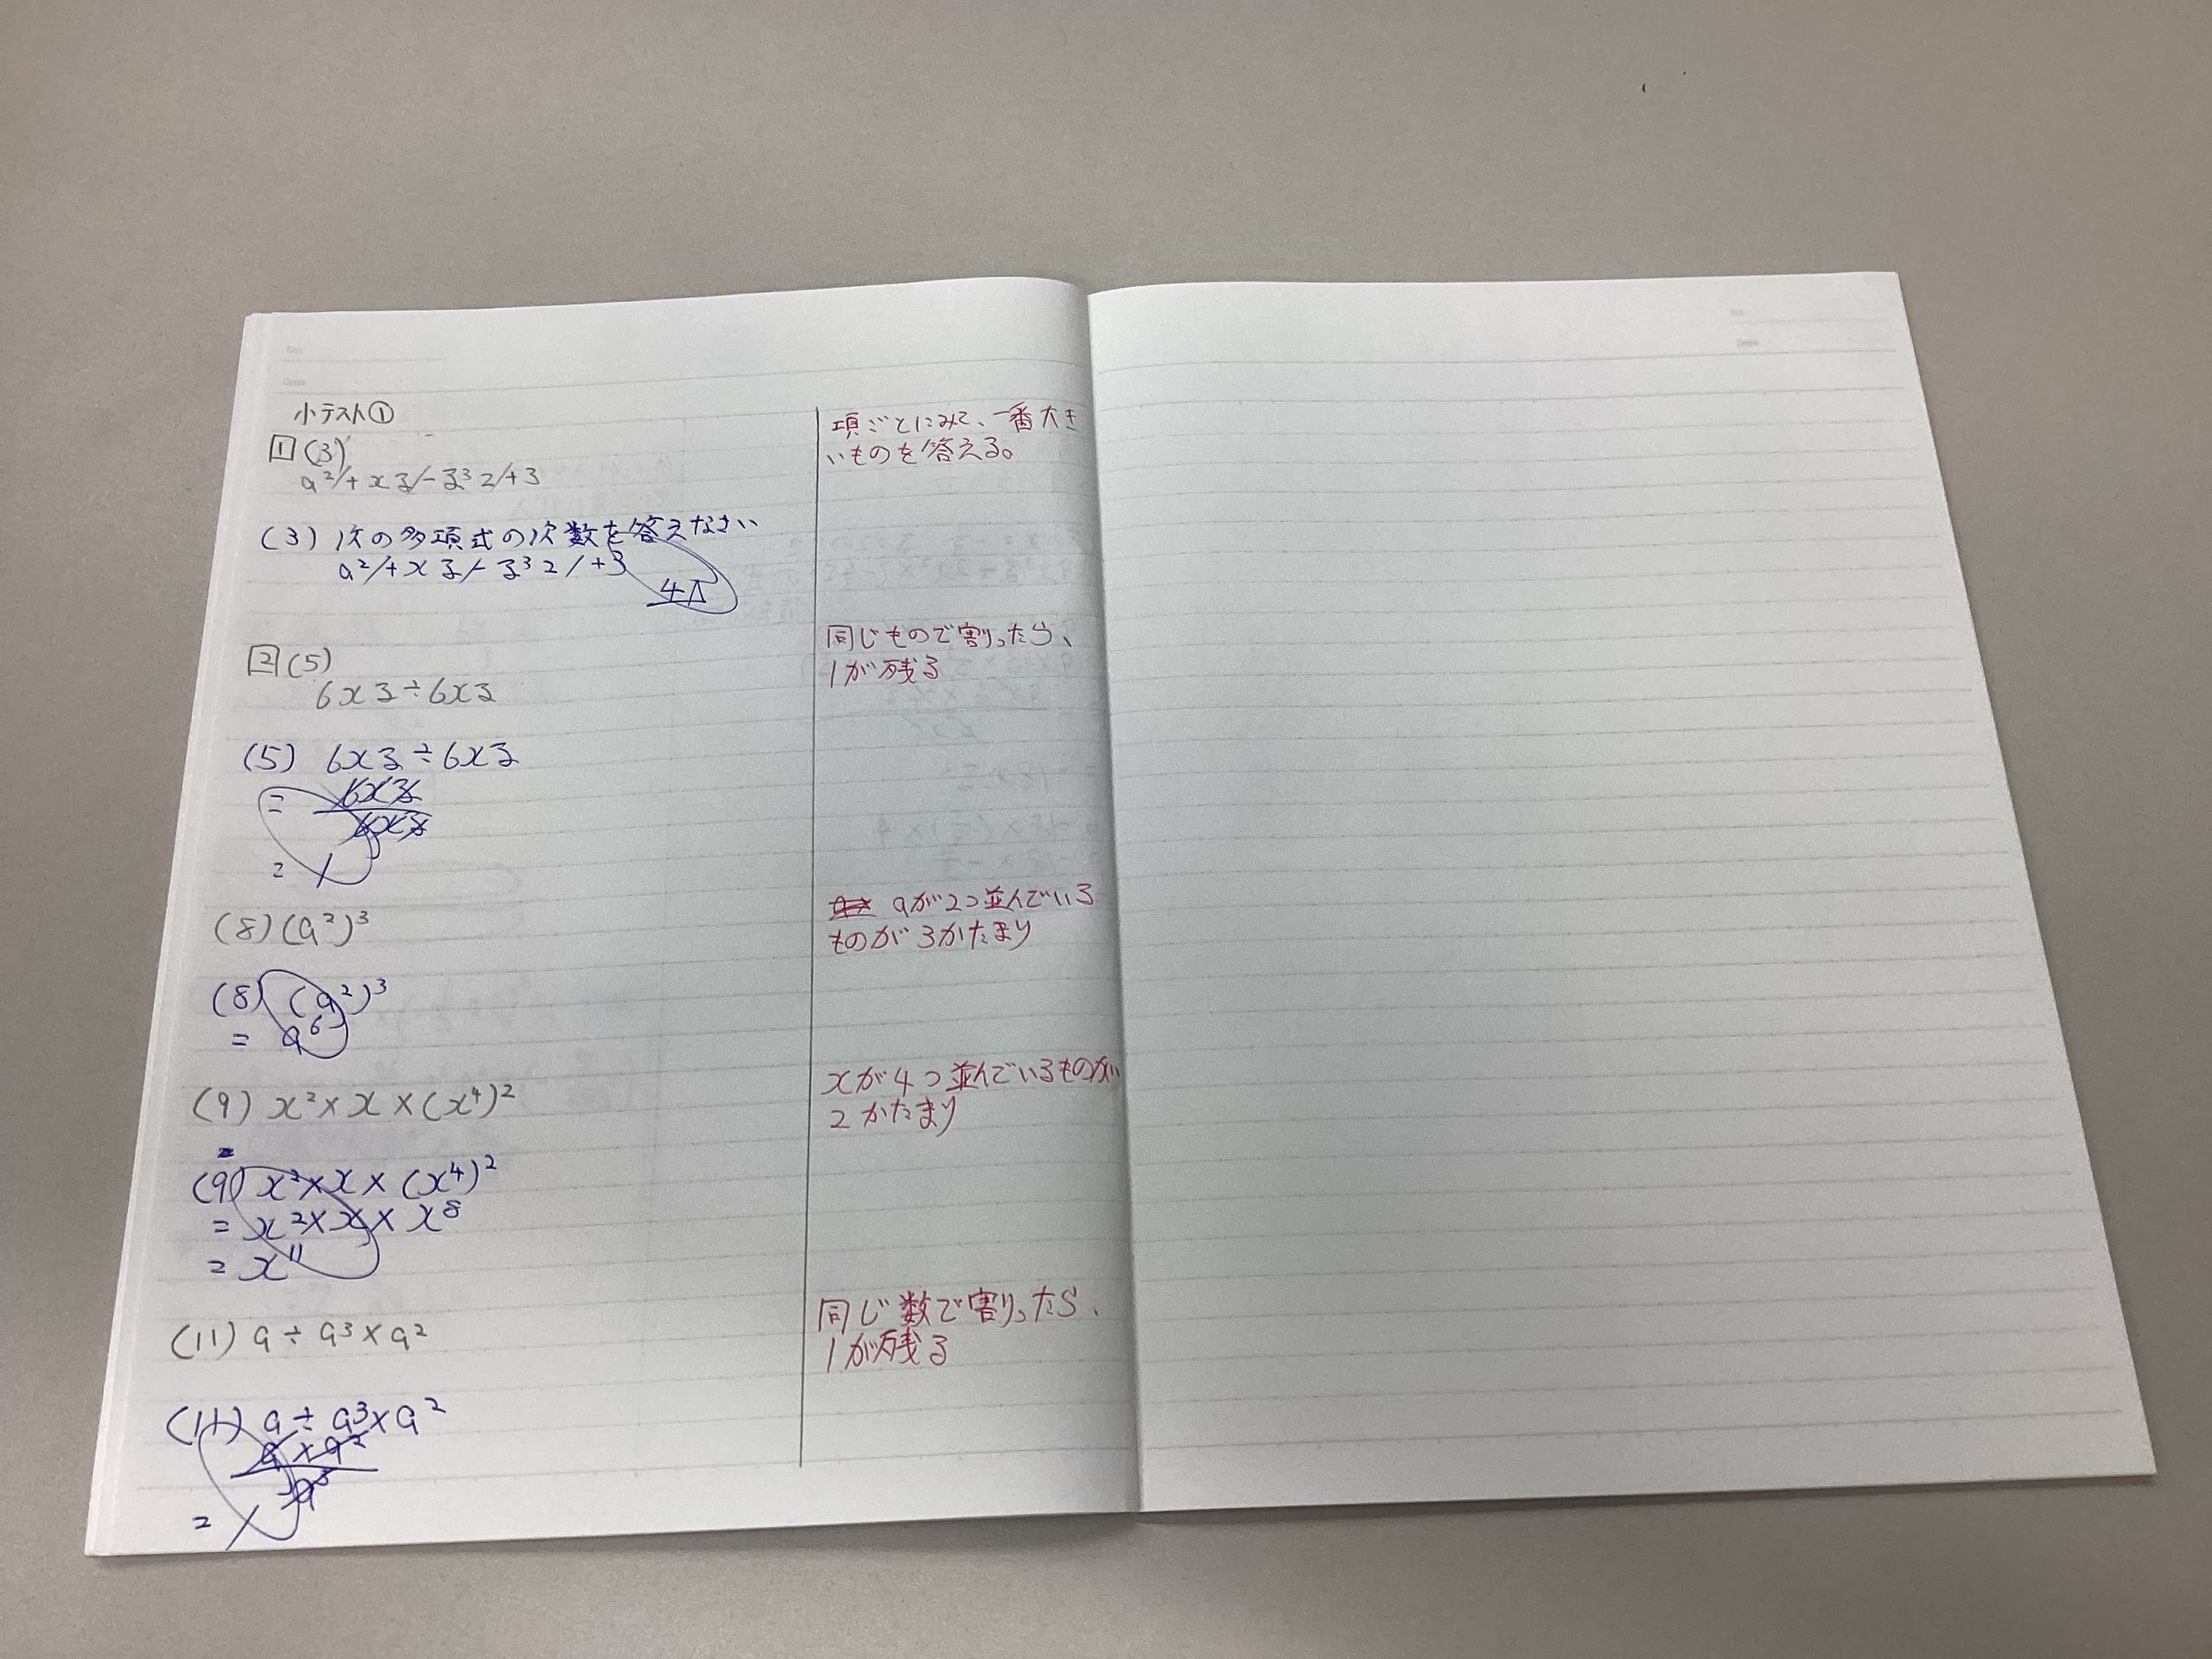 小テスト①
1 (3)
a²/+xy/-y³z/+3
(3) 次の多項式の次数を答えなさい
a²/+xy/-y³z/+3
4次
2 (5)
6xy÷6xy
(5) 6xy÷6xy
= 6xy/6xy
= 1
(8) (a²)³
(8) (a²)³
= a⁶
(9) x²×x×(x⁴)²
(9) x²×x×(x⁴)²
= x²×x×x⁸
= x¹¹
(11) a÷a³×a²
(11) a÷a³×a²
a×a²/a³
= 1
項ごとにみて、一番大き
いものを答える。
同じもので割ったら、
1が残る
aが2つ並んでいる
ものが3かたまり
xが4つ並んでいるものが
2かたまり
同じ数で割ったら、
1が残る